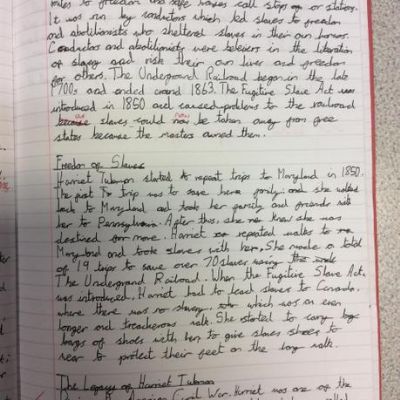 miles to freedom and safe houses call stops or stations.
It was run by conductors which led slaves to freedom
and abolitionists who sheltered slaves in their own homes.
Conductors and abolitionists were believers in the liberation
of slavery and risk their own lives and freedom
for others. The Underground Railroad began in the late
1700s and ended around 1863. The Fugitive Slave Act was
introduced in 1850 and caused problems to the railroad
because slaves could now be taken away from free
states because the masters owned them.
Freedom of Slaves
Harriet Tubman started to repeat trips to Maryland in 1850.
The first trip was to save her family and she walked
back to Maryland and took her family and friends with
her to Pennsylvania. After this, she knew she was
destined for more. Harriet repeated walks to
Maryland and took slaves with her. She made a total
of 19 trips to save over 70 slaves using
The Underground Railroad. When the Fugitive Slave Act,
was introduced, Harriet had to lead slaves to Canada,
where there was no slavery, which was an even
longer and treacherous walk. She started to carry big
bags of shoes with her to give slaves shoes to
wear to protect their feet on the long walk.
The Legacy of Harriet Tubman
American Civil War, Harriet was one of the